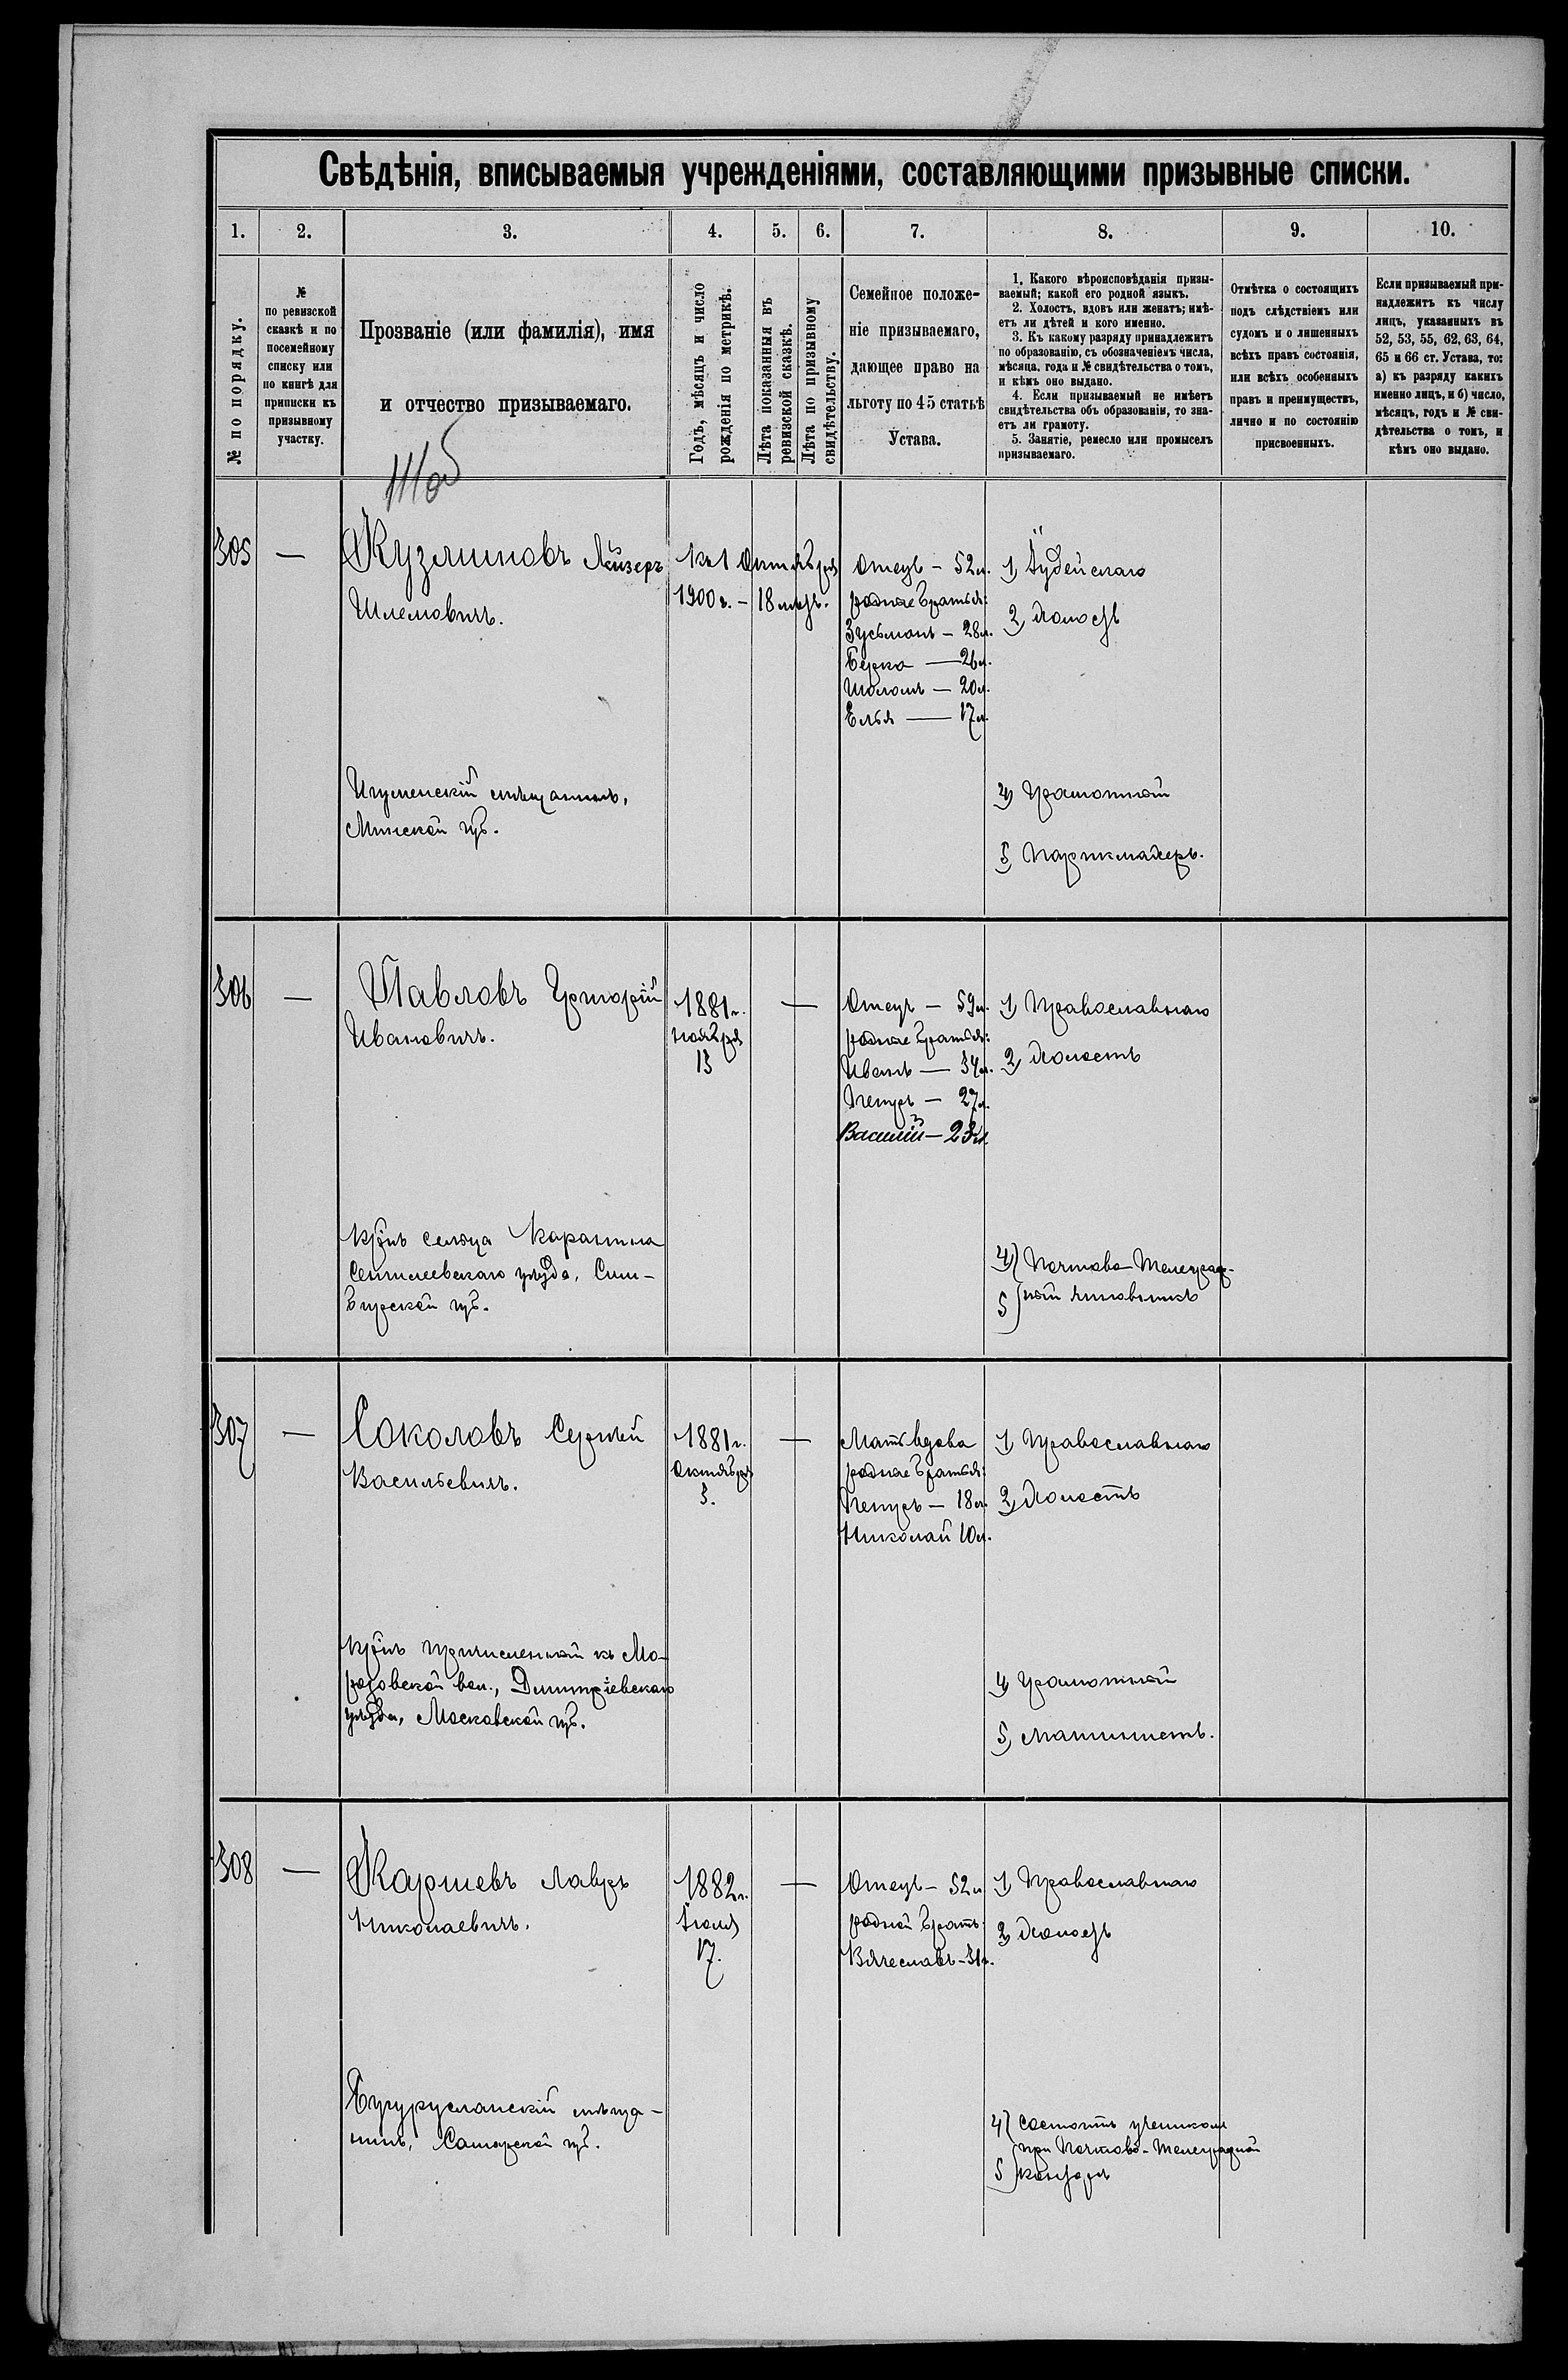 Свѣдѣнія, вписываемыя учрежденіями, составляющими призывные списки.
1. 2. 3. 4. 5. 6. 7. 8. 9. 10.
№ по порядку.
№
по ревизской
сказкѣ и по
посемейному
списку или
по книгѣ для
приписки къ
призывному
участку.
Прозваніе (или фамилія), имя
и отчество призываемаго.
Годъ, мѣсяцъ и число
рожденія по метрикѣ.
Лѣта показанныя въ
ревизской сказкѣ.
Лѣта по призывному
свидѣтельству.
Семейное положе-
ніе призываемаго,
дающее право на
льготу по 45 статьѣ
Устава.
1. Какого вѣроисповѣданія призы-
ваемый; какой его родной языкъ.
2. Холостъ, вдовъ или женатъ; имѣ-
етъ ли дѣтей и кого именно.
3. Къ какому разряду принадлежитъ
по образованію, съ обозначеніемъ числа,
мѣсяца, года и № свидѣтельства о томъ,
и кѣмъ оно выдано.
4. Если призываемый не имѣетъ
свидѣтельства объ образованіи, то зна-
етъ ли грамоту.
5. Занятіе, ремесло или промыселъ
призываемаго.
Отмѣтка о состоящихъ
подъ слѣдствіемъ или
судомъ и о лишенныхъ
всѣхъ правъ состоянія,
или всѣхъ особенныхъ
правъ и преимуществъ,
лично и по состоянію
присвоенныхъ.
Если призываемый при-
надлежитъ къ числу
лицъ, указанныхъ въ
52, 53, 55, 62, 63, 64,
65 и 66 ст. Устава, то:
а) къ разряду какихъ
именно лицъ, и б) число,
мѣсяцъ, годъ и № сви-
дѣтельства о томъ, и
кѣмъ оно выдано.
305 —
Лейзеръ
Шлемовичъ.
Игуменскій мѣщанинъ,
Минской губ.
Къ 1 Октября
1900 г. – 18 лѣтъ.
Отецъ – 52 л.
родные братья:
Зусьманъ – 28 л.
Берко — 26 л.
Шоломъ – 20 л.
Елья — 17 л.
1) Іудейскаго
2) Холостъ
4) Грамотный
5) Парикмахеръ.
306 —
Павловъ Григорій
Ивановичъ.
Кр-нъ сельца Карамзина
Сенгилеевскаго уѣзда, Сим-
бирской губ.
1881 г.
Ноября
13
—
Отецъ – 59 л.
родные братья:
Иванъ — 34 л.
Петръ – 27 л.
Василій – 23 л.
1) Православнаго
2) Холостъ
4) Почтово-Телеграф-
5) ный чиновникъ
307 —
Соколовъ Сергѣй
Васильевичъ.
Кр-нъ причисленный къ Мо-
розовской вол., Дмитріевскаго
уѣзда, Московской губ.
1881 г.
Октября
3.
—
Мать вдова
родные братья:
Петръ – 18 л.
Николай 10 л.
1) Православнаго
2) Холостъ
4) Грамотный
5) Машинистъ.
308 —
Лавръ
Николаевичъ.
Бугурусланскій мѣща-
нинъ, Самарской губ.
1882 г.
Іюля
17.
—
Отецъ – 52 л.
родной братъ:
Вячеславъ – 31 г.
1) Православнаго
2) Холостъ
4) Состоитъ ученикомъ
при Почтово-Телеграфной
5) конторѣ